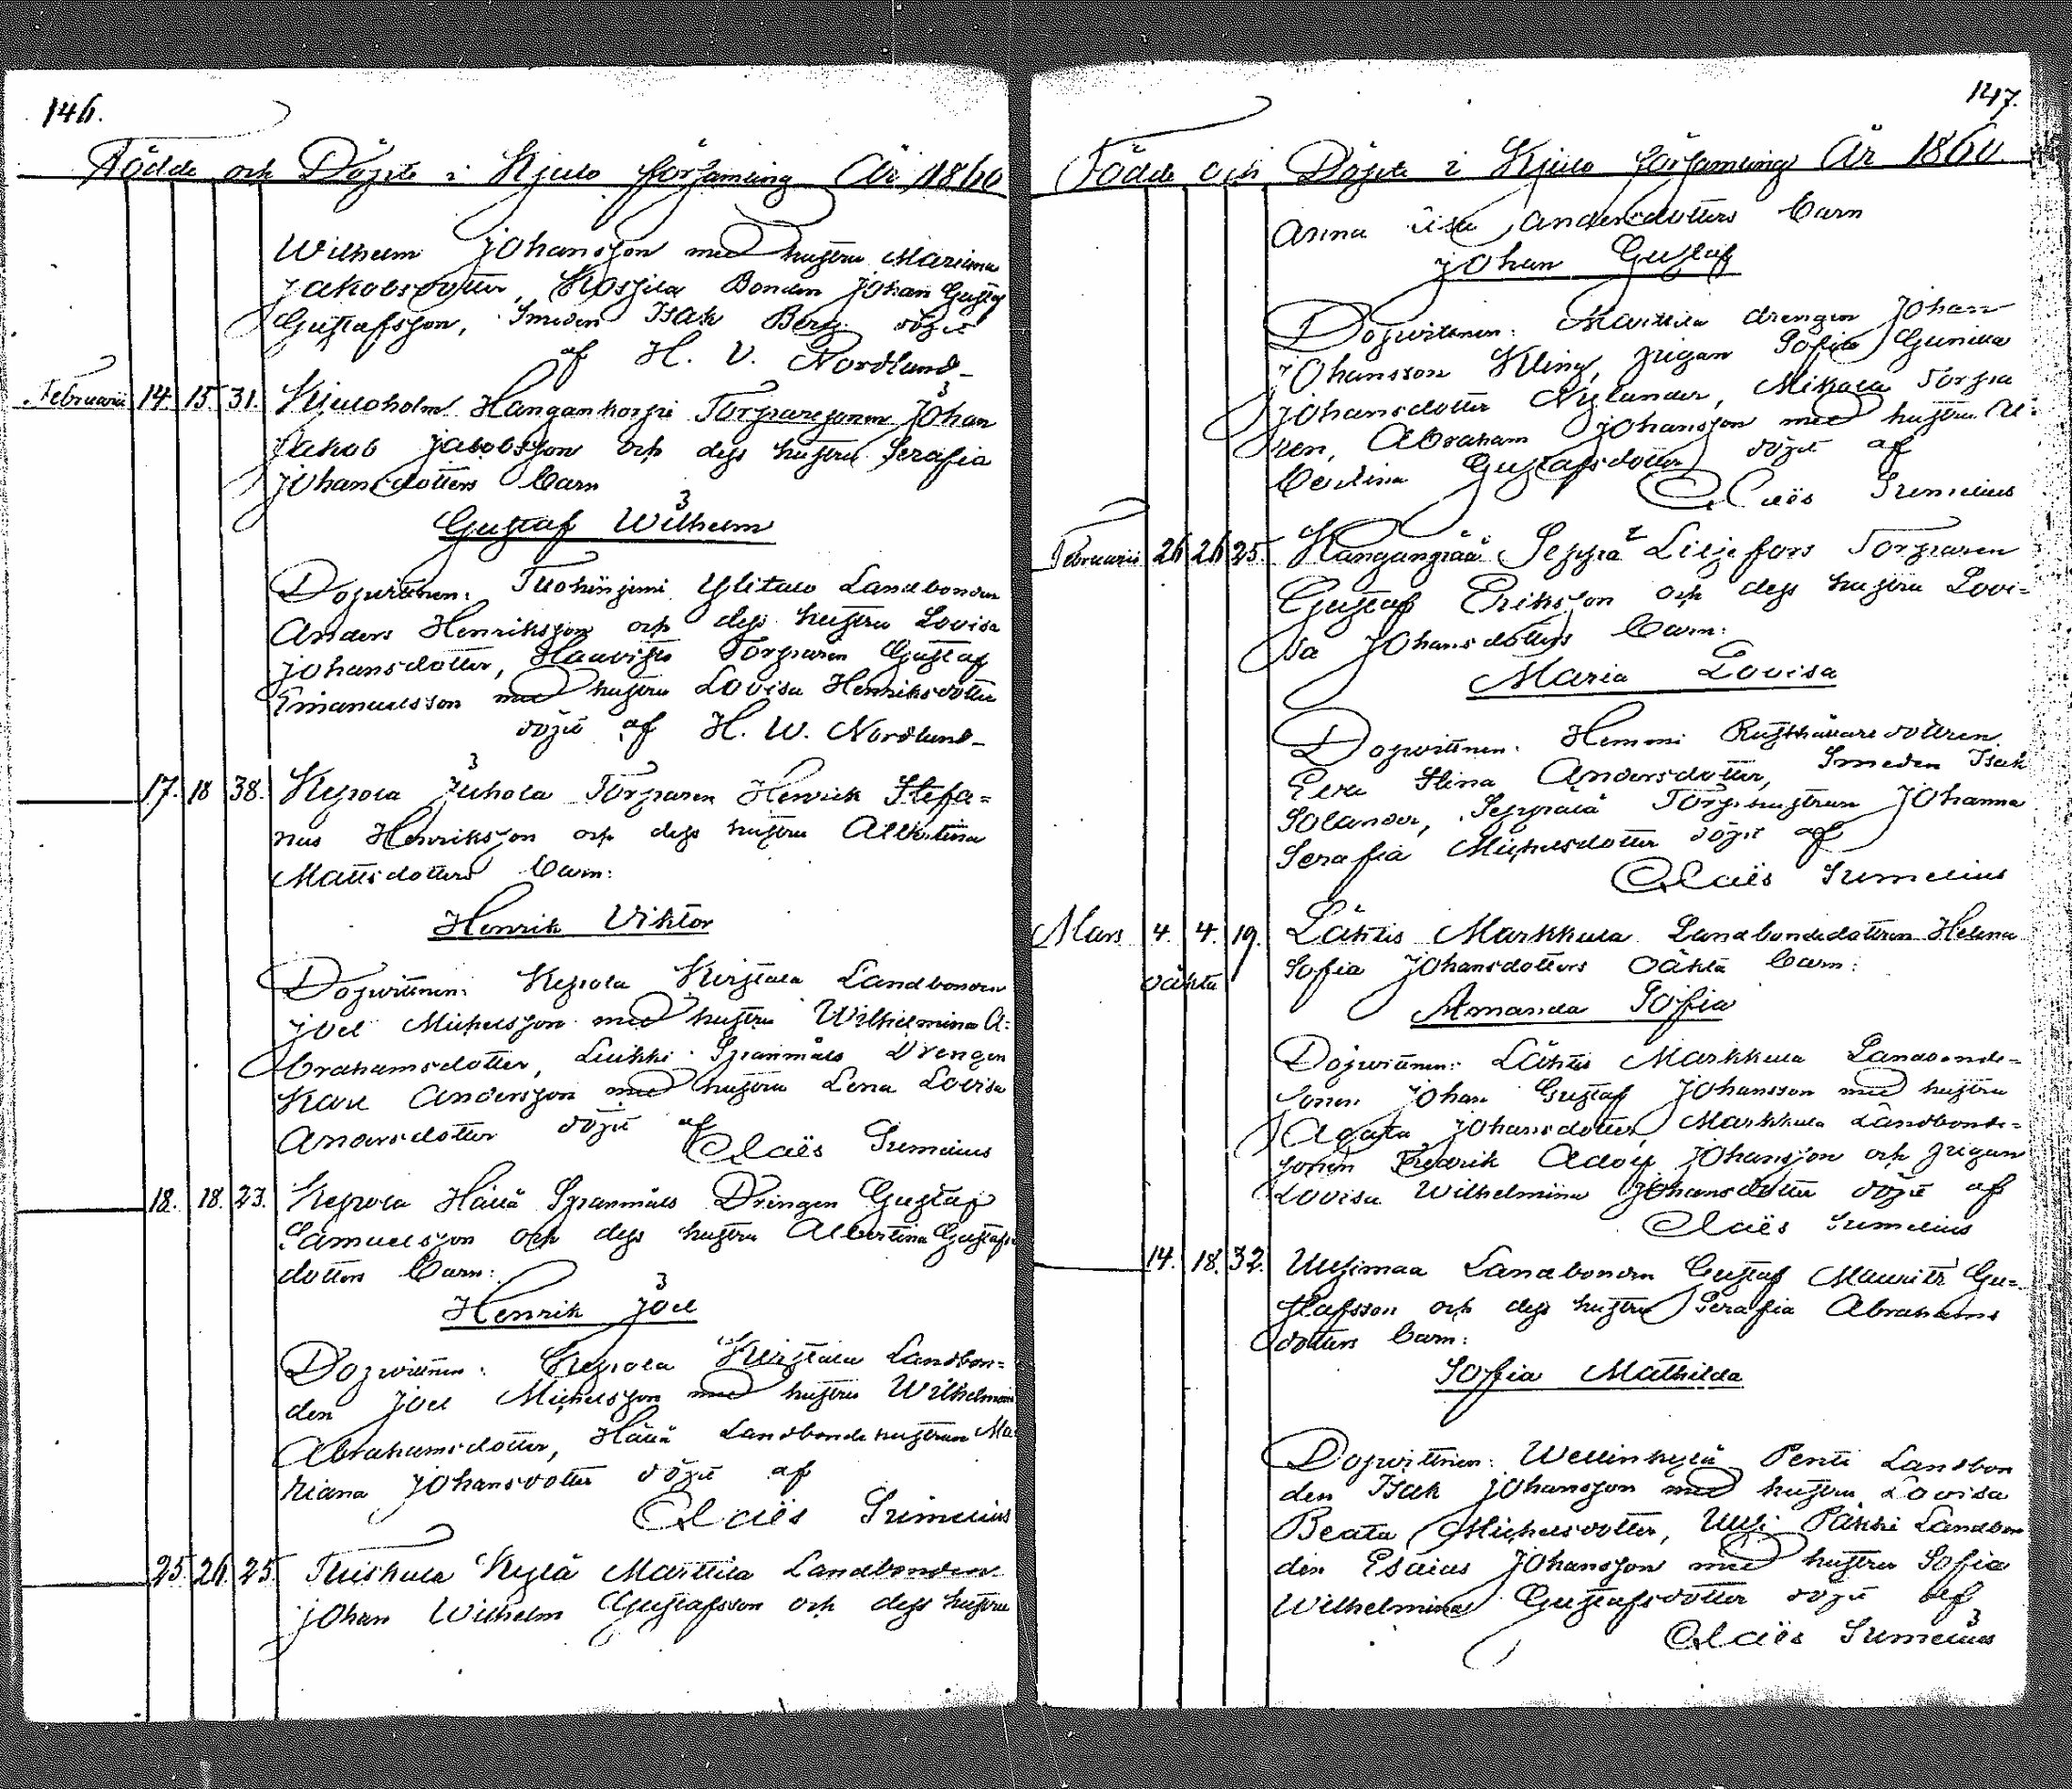 146.
Födde och Döpte i Kjulo församling År 1860
Wilhelm Johansson med hustru Mariana
Jakobsdotter, Kospila Bonden Johan Gustaf
Gustafsson, Smeden Isak Berg döpte
af H. V. Nordlund
Februarii 14. 15. 31. Kjuloholm Hangankorpi Torparesonen Johan
Jakob Jakobsson och dess hustru Serafia
Johansdotters barn
Gustaf Wilhelm
Dopvittnen: Tuohiniemi Ylitalo Landbonden
Anders Henriksson och dess hustru Lovisa
Johansdotter, Haavisto Torparen Gustaf
Emanuelsson med hustru Lovisa Henriksdotter
döpte af H. W. Nordlund
17. 18 38. Kepola Juhola Torparen Henrik Stefa=
nus Henriksson och dess hustru Albertina
Mattsdotters barn:
Henrik Viktor
Dopvittnen: Kepola Kirstala Landbonden
Joel Michelsson med hustru Wilhelmina A=
brahamsdotter, Luikki Spannmåls Drengen
Karl Andersson med hustru Lena Lovisa
Andersdotter döpte af
Claës Sumelius
18. 18. 23. Kepola Hällä Spannmåls Drengen Gustaf
Samuelsson och dess hustru Albertina Gustafs
dotters barn:
Henrik Joel
Dopvittnen: Kepola Kirstala Landbon=
den Joel Michelsson med hustru Wilhelmina
Abrahamsdotter, Hällä Landbondehustrun Ma
riana Johansdotter döpte af
Claës Sumelius
25. 26. 25. Tuiskula Kylä Marttila Landbonden
Johan Wilhelm Gustafsson och dess hustru
147.
Födde och Döpte i Kjulo församling År 1860
Anna Lisa Andersdotters barn
Johan Gustaf
Dopvittnen: Marttila drengen Johan
Johansson Kling, pigan Sofia Gunilla
Johansdotter Nylander, Mikola Torpa
ren, Abraham Johansson med hustru Ul=
Gustafsdotter döpte af
Claës Sumelius
Februarii 26 26 25. Kanganpää Seppä Liljefors Torparen
Gustaf Eriksson och dess hustru Lovi=
sa Johansdotters barn:
Maria Lovisa
Dopvittnen: Hemmi Rusthållaredottren
Eva Stina Andersdotter, Smeden Isak
Solander, Seppälä Torp.hustrun Johanna
Serafia Michelsdotter döpte af
Claës Sumelius
Mars 4. 4. 19. Lähtis Markkula Landbondedottern Helena
oäkta Sofia Johansdotters oäkta barn:
Amanda Sofia
Dopvittnen: Lähtis Markkula Landbonde=
sonen Johan Gustaf Johansson med hustru
Agata Johansdotter, Markkula Landbonde=
sonen Fredrik Adolf Johansson och pigan
Lovisa Wilhelmina Johansdotter döpte af
Claës Sumelius
14. 18. 32. Uusimaa Landbonden Gustaf Maurits Gu=
stafsson och dess hustru Serafia Abrahams
dotters barn:
Sofia Mathilda
Dopvittnen: Wellinkylä Pentti Landbon
den Isak Johansson med hustru Lovisa
Beata Michelsdotter, Uusi Päkki Landbon
den Esaias Johansson med hustru Sofia
Wilhelmina Gustafsdotter döpte af
Claës Sumelius